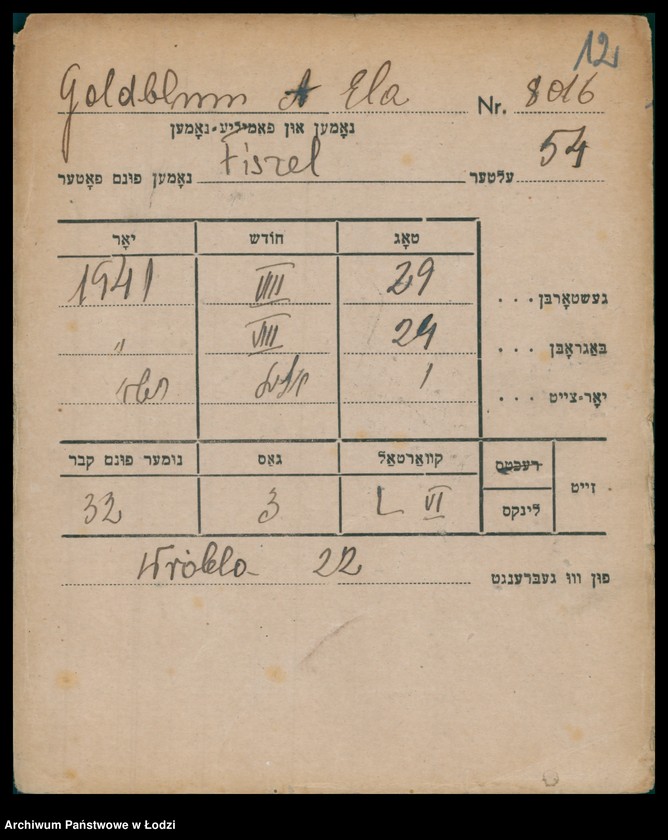 12
Goldblum A Ela Nr. 8016
נאָמען און פאַמיליע-נאָמען
נאָמען פונם פאָטער Fiszel עלטער 54
יאָר חודש טאָג
1941 VIII 29 געשטאָרבן . . .
" VIII 24 באַגראָבן . . .
1 יאָר-צייט . . .
נומער פונם קבר גאַס קוואַרטאַל רעכטס זייט
32 3 L VI לינקס
Wróbla 22 פון וווּ געברענגט
Archiwum Państwowe w Łodzi